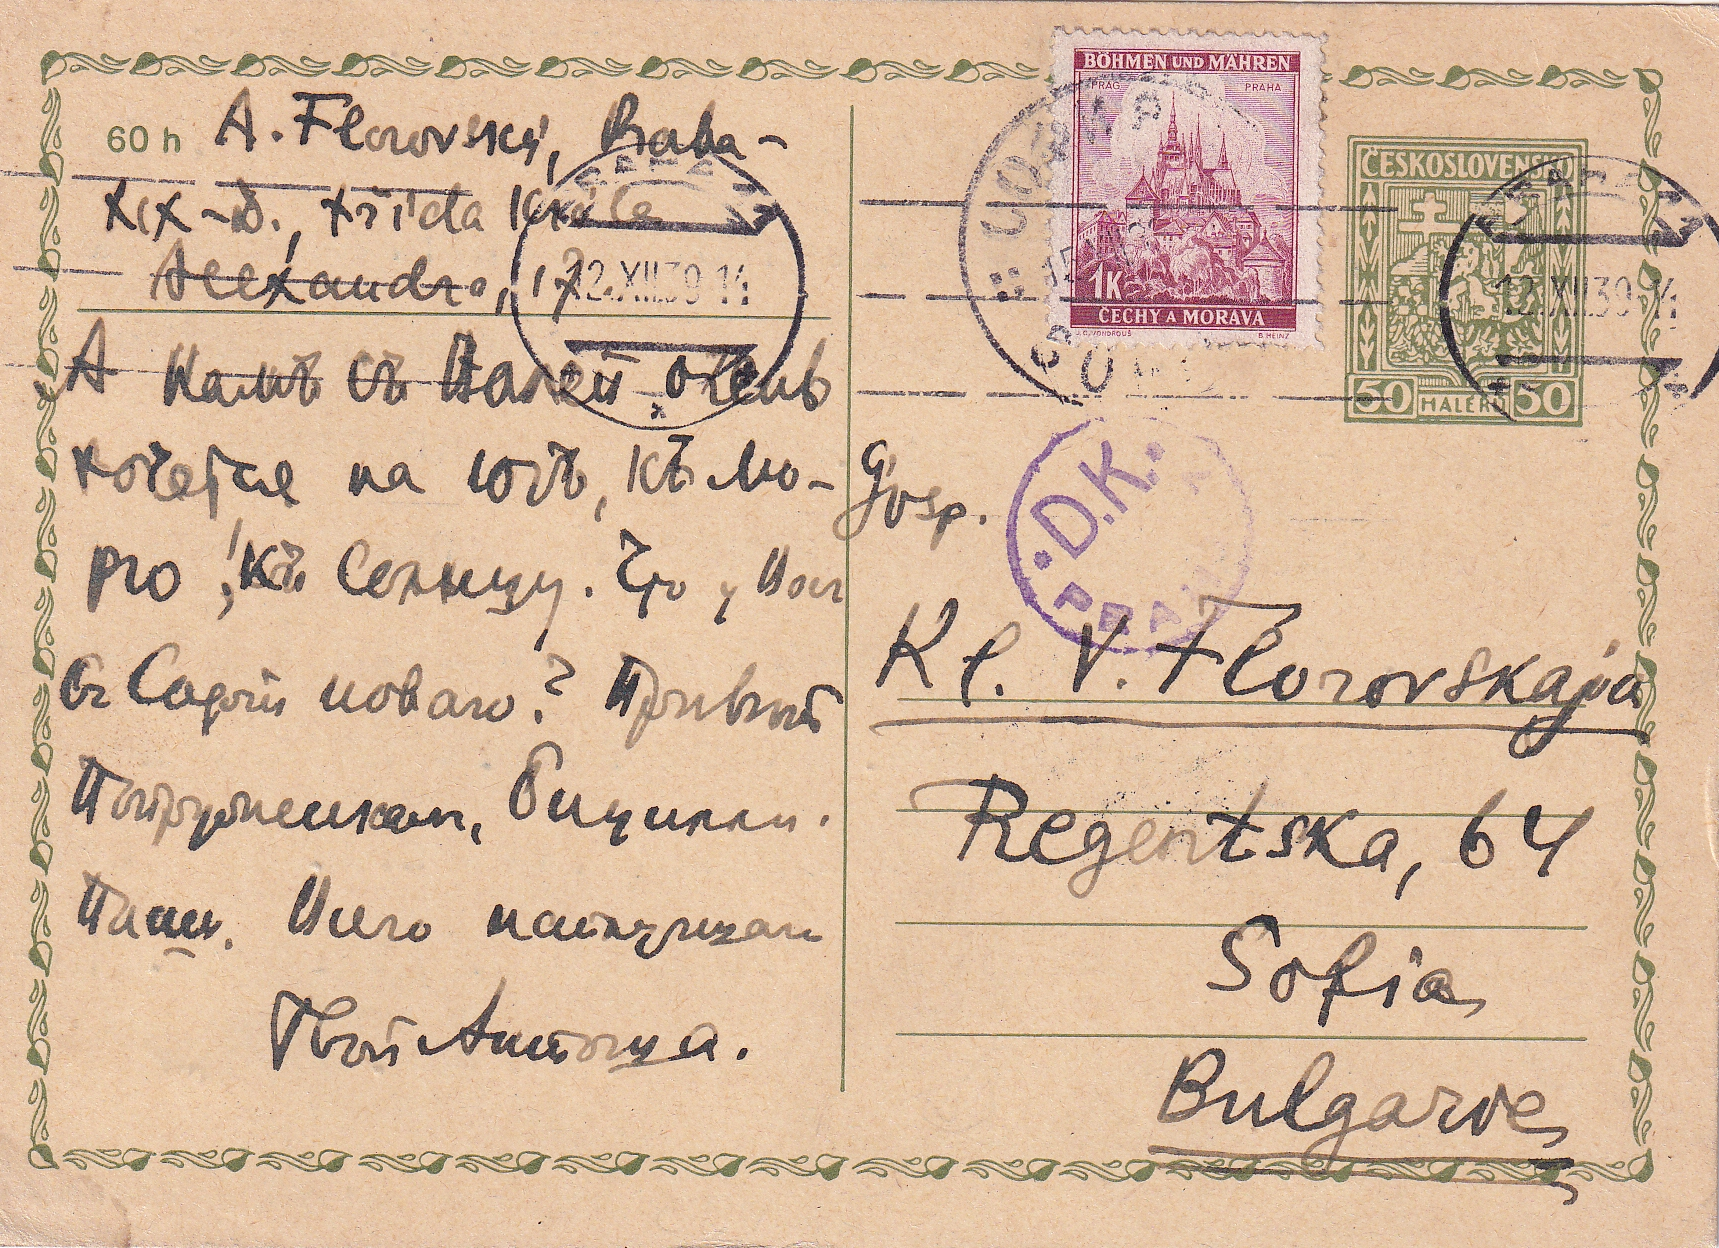 60 h
A. Florovský, Praha-
XIX-D., třída Krále
Alexandra, 17
А намъ съ Валей очень
хочется на югъ, къ мо-
рю, къ солнцу. Что у Васъ
въ Софіи новаго? Привѣтъ
Бицилли.
Всего наилучшаго
Твой Антоша.
BÖHMEN UND MÄHREN
PRAG PRAHA
1K
ČECHY A MORAVA
J.C. VONDROUŠ B. HEINZ
ČESKOSLOVENSKO
50 HALÉŘŮ 50
12.XII.39 14
12.XII.39 14
D.K.
PRAHA
Gosp.
Kl. V. Florovskaja
Regentska, 64
Sofia
Bulgarie